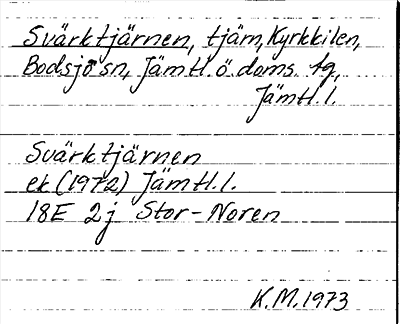 Svärktjärnen, tjärn, Kyrkkilen,
Bodsjö sn, Jämtl. ö. doms. tg,
Jämtl. l.
Svärktjärnen
ek (1972) Jämtl. l.
18E 2j Stor-Noren
K.M. 1973